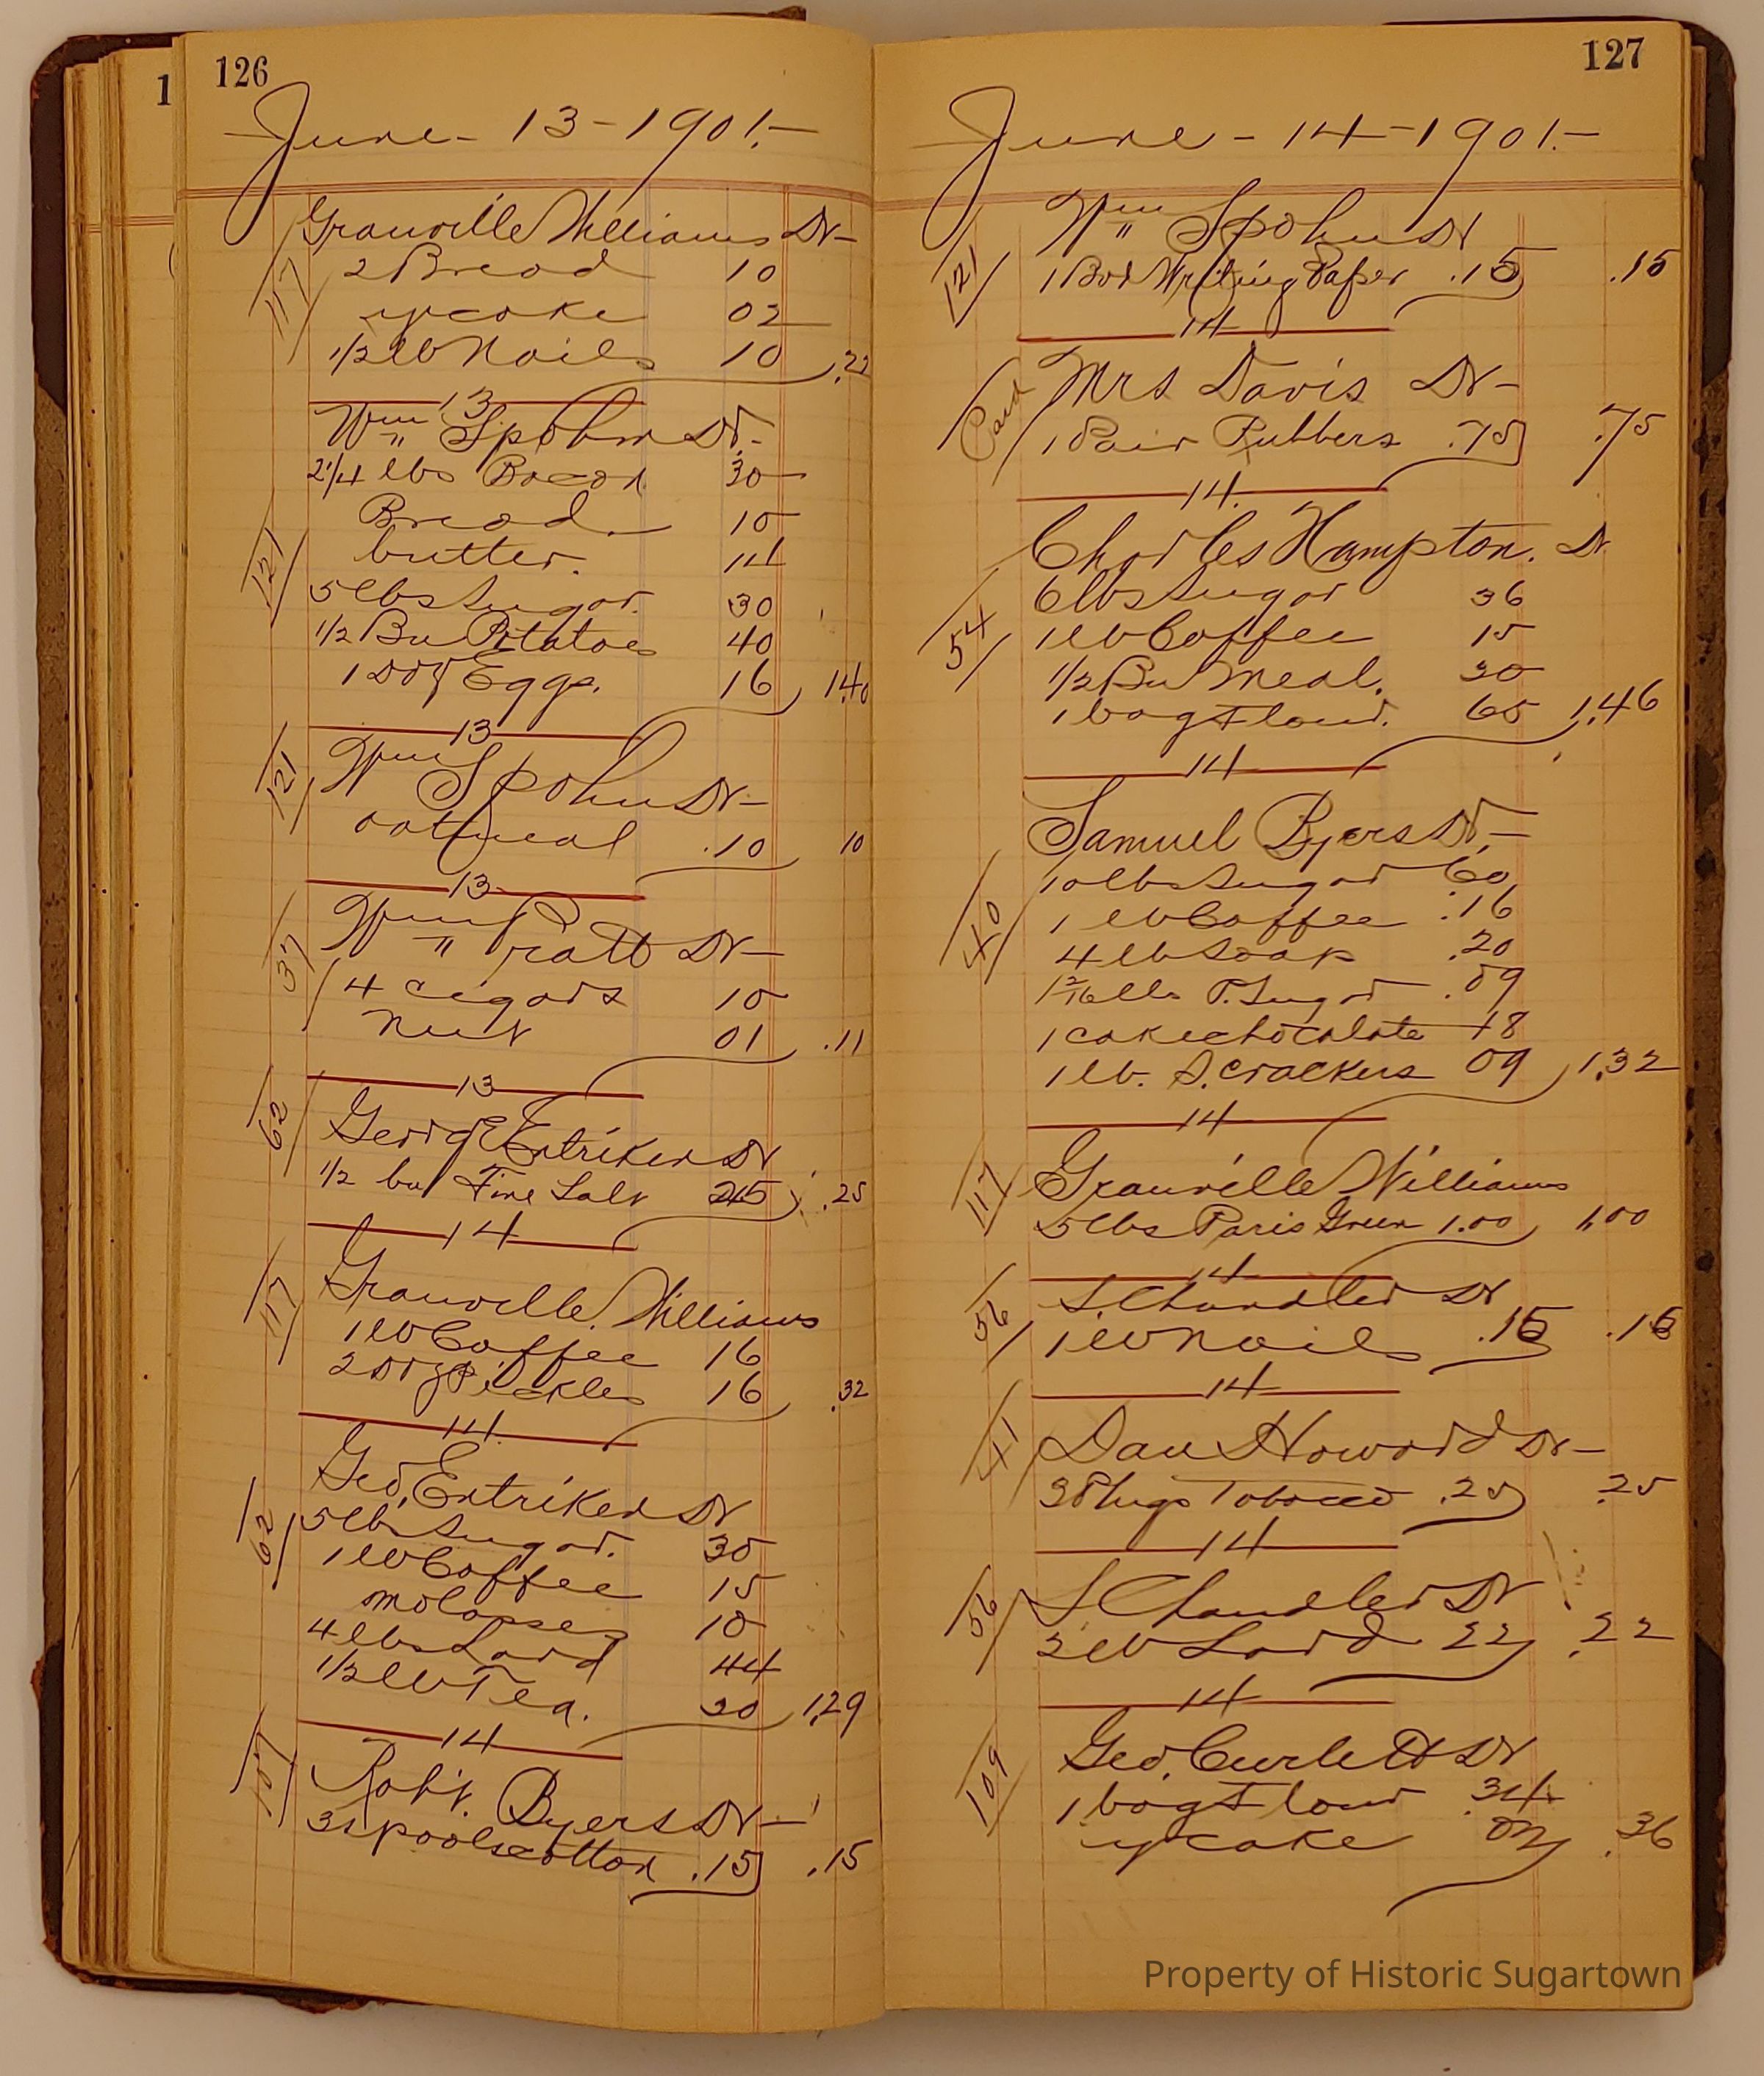 1
126
June - 13 - 1901.-
Granville Williams Dr -
117
2 Bread 10
ycake 02
1/2 lb Nails 10 .22
13
Wm Spohn Dr.
2 1/4 lbs Bacon 30
Bread 10
121
butter. 14
5 lbs Sugar. 30
1/2 Bu Potatoes 40
1 Doz Eggs. 16 1.40
13
121
Wm Spohn Dr -
oatmeal .10 10
13
Wm Pratt Dr -
37
4 cigars 10
Nut 01 .11
13
62
George Entriken Dr
1/2 bu Fine Salt 25 .25
14
117
Granville Williams
1 lb Coffee 16
2 Doz Pickles 16 .32
14
Geo. Entriken Dr
62
5 lbs Sugar. 30
1 lb Coffee 15
molasses 10
4 lbs Lard 44
1/2 lb Tea. 30 1.29
14
107
Robt. Byers Dr -
3 spools cotton .15 .15
127
June - 14 - 1901.-
Wm Spohn Dr
121
1 Box Writing Paper .15 .15
14
Mrs Davis Dr -
1 Pair Rubbers .75 .75
14
Charles Hampton. Dr
54
6 lbs Sugar 36
1 lb Coffee 15
1/2 Bu Meal. 30
1 bag Flour. 65 1.46
14
Samuel Byers Dr -
40
10 lbs Sugar 60
1 lb Coffee .16
4 lb Soap .20
lbs P. Sugar .09
1 cake chocolate 18
1 lb. S. Crackers 09 1.32
14
117
Granville Williams
5 lbs Paris Green 1.00 1.00
14
56
S. Chandler Dr
1 lb Nails .15 .15
14
41
Dan Howard Dr -
3 Plugs Tobacco .25 .25
14
56
S Chandler Dr
2 lb Lard 22 .22
14
109
Geo. Curlett Dr
1 bag Flour .34
ycake 02 .36
Property of Historic Sugartown